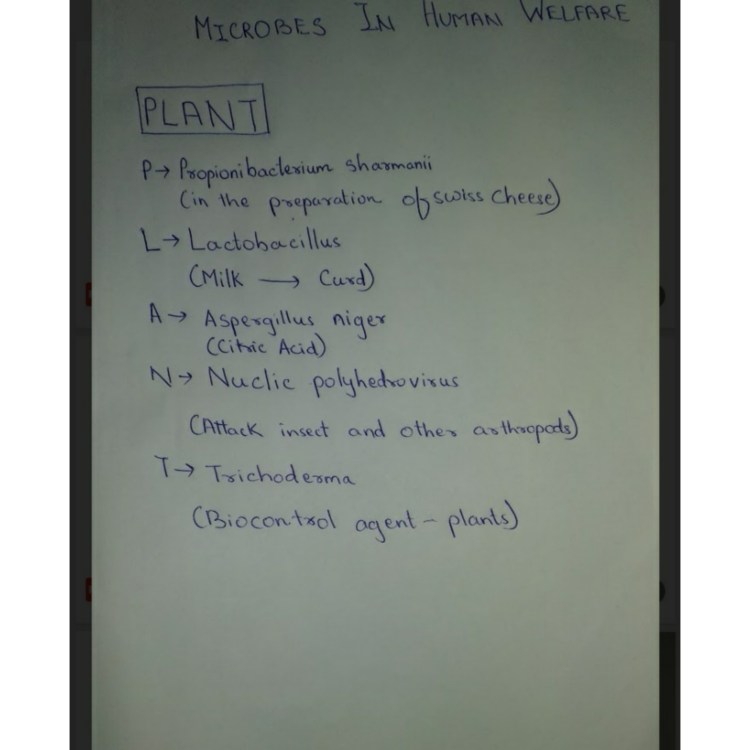 MICROBES IN HUMAN WELFARE
PLANT
P→ Propionibacterium sharmanii
(in the preparation of swiss cheese)
L→ Lactobacillus
(Milk → Curd)
A→ Aspergillus niger
(Citric Acid)
N→ Nuclic polyhedrovirus
(Attack insect and other arthropods)
T→ Trichoderma
(Biocontrol agent – plants)